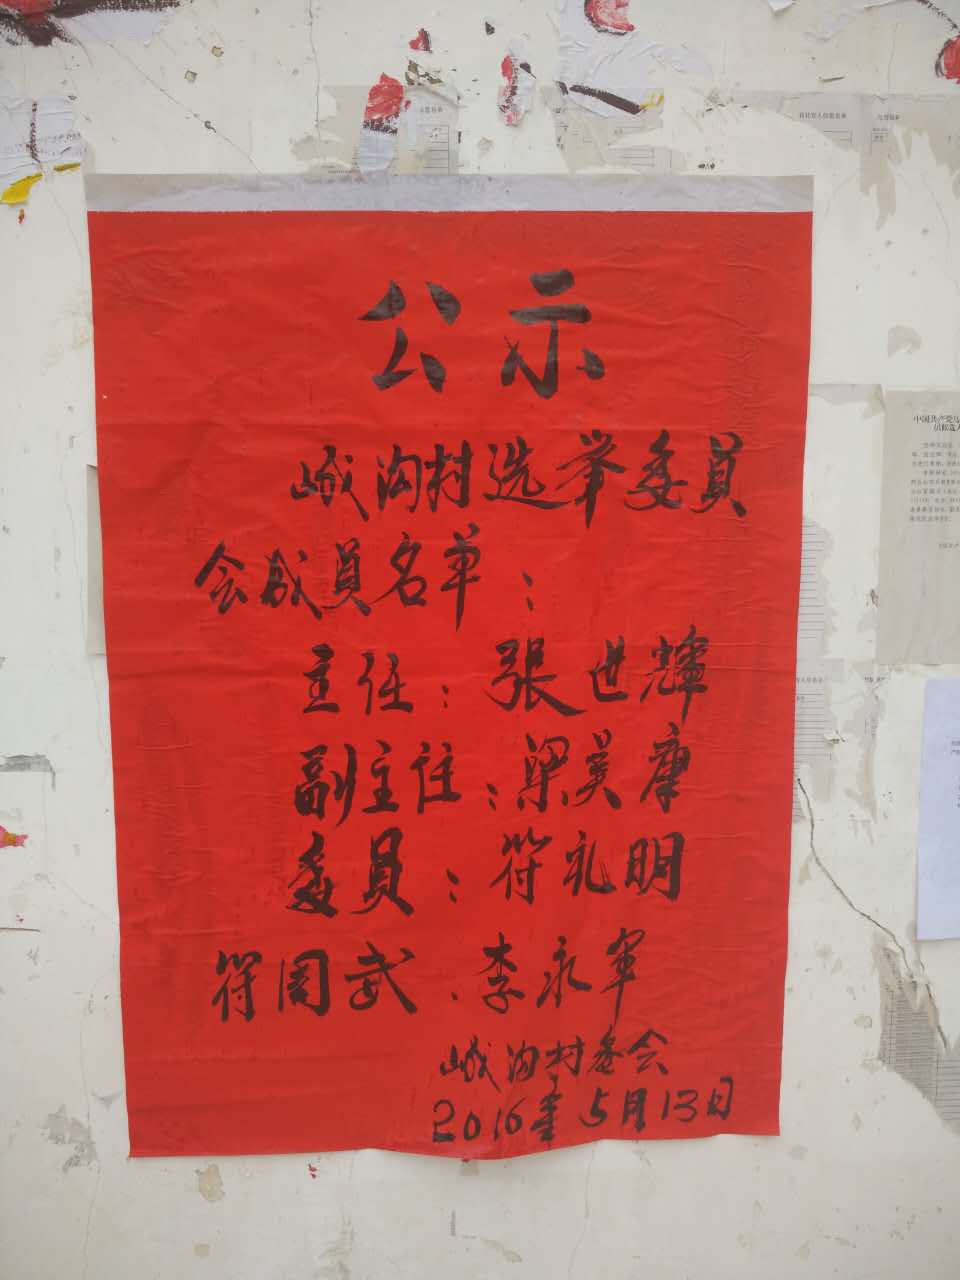 公示
峨沟村选举委员
会成员名单：
主任：張世輝
副主任：梁英康
委员：符礼明
符周武、李永军
峨沟村委会
2016年5月13日
中国共产党